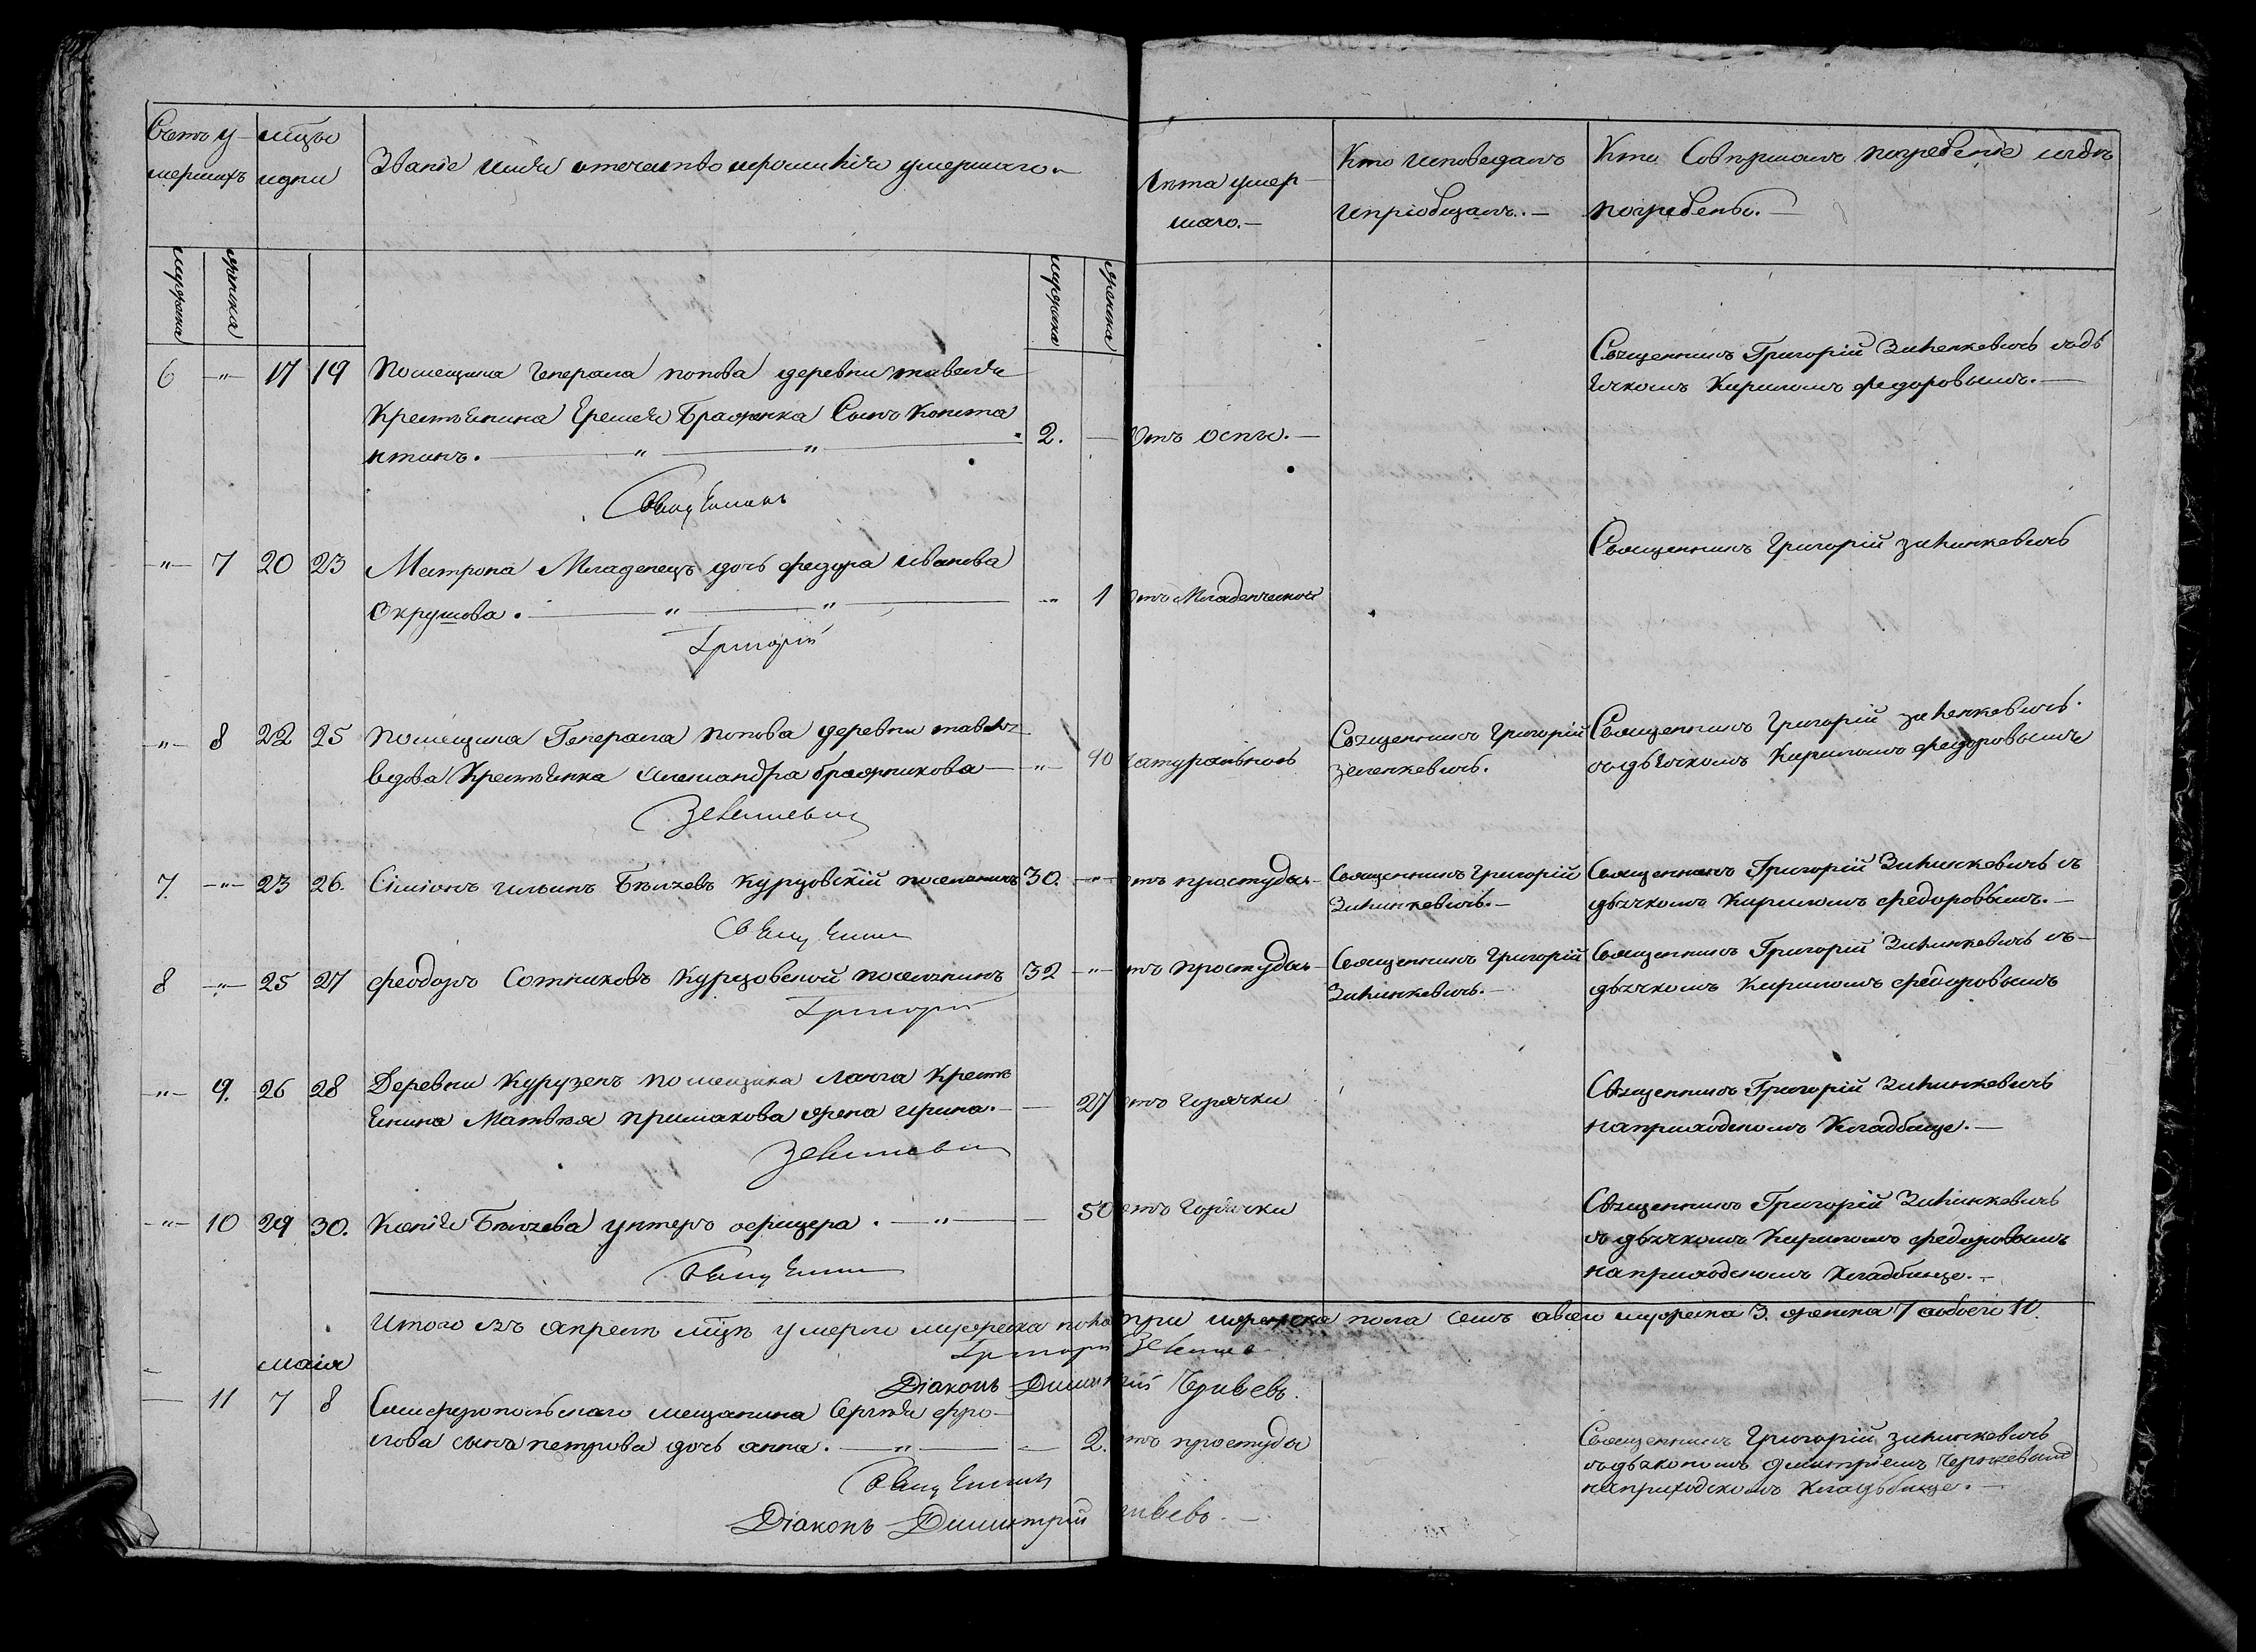 Счетъ у- мѣцы
мершихъ идни
Званіе имя отечество ипрошивіе умершаго.
Лѣта умер
шаго.
Кто исповедалъ
ипріобщалъ.
Кто Совершалъ погребеніе игдѣ
погребены.
мужеска женска мужеска женска
6 17 19 помещика Генерала попова деревни тавеля
Крестьянина Ермея Браженка Сынъ Конста
нтинъ. 2. Отъ оспы.
Священникъ Григорій Зиненкевичь съдь
ячкомъ Кириломъ федоровымъ.
Священникъ
7 20 23 Матрона Младенецъ дочь федора иванова
Окрушова. 1 отъ Младенческой
Священникъ Григорій зинкевичь
Григорій
8 22 25 помещика Генерала попова деревни тавель
вдова Крестьянка Александра бражникова 90 натуральною
Священникъ Григорій
зеленкевичь.
Священникъ Григорій зиленкевичь
съдьячкомъ Кириломъ федоровымъ
7. 23 26. Сіміонъ ильинъ Бѣлчевъ Курцовскій поселянинъ 30. отъ простуды
Священникъ Григорій
Священникъ Григорій
дьячкомъ Кириломъ федоровымъ.
8 25 27 феодоръ Сотниковъ Курцовской поселянинъ 32 отъ простуды
Священникъ Григорій
Священникъ Григорій
дьячкомъ Кириломъ федоровымъ
Григорій
9. 26 28 Деревни Курузенъ помещика Ланга Кресть
янина Матвѣя примакова жена ирина. 27 отъ Горячки
Священникъ Григорій
наприходскомъ Кладбище.
10 29 30. Ксенія Бѣлчева унтеръ офицера. 50 отъ Горячки
Священникъ Григорій
съ дьячкомъ Кириломъ федоровымъ
наприходскомъ Кладбище.
Итого въ апрелѣ мѣцѣ умерло мужеска пола три женска пола семь авсего мужеска 3. женска 7 аобоего 10.
Григорій
Діаконъ Димитрій
маія
11 7 8 Симферопольскаго мещанина Сергѣя фро-
лова сына петрова дочь анна. 2. отъ простуды
Священникъ Григорій
съдьякономъ Димитріемъ
наприходскомъ Кладбище.
Священникъ
Діаконъ Димитрій